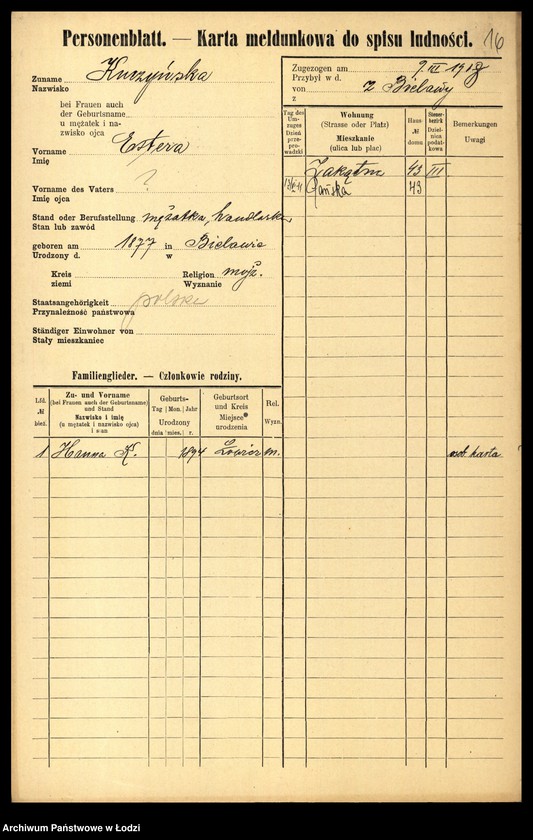 Personenblatt. — Karta meldunkowa do spisu ludności.
16
Zuname
Nazwisko
Kuczyńska
bei Frauen auch
der Geburtsname
u mężatek i na-
zwisko ojca
Vorname
Imię
Estera
Vorname des Vaters
Imię ojca
?
Stand oder Berufsstellung
Stan lub zawód
mężatka, handlarka,
geboren am 1877 in Bielawie
Urodzony d. w
Kreis
ziemi
Religion
Wyznanie
mojż.
Staatsangehörigkeit
Przynależność państwowa
polska
Ständiger Einwohner von
Stały mieszkaniec
Zugezogen am
Przybył w d.
von
z
z Bielawy
Tag des
Um-
zuges
Dzień
prze-
prowadzki
Wohnung
(Strasse oder Platz)
Mieszkanie
(ulica lub plac)
Haus-
№
domu
Steuer-
bezirk
Dziel-
nica
podat-
kowa
Bemerkungen
Uwagi
Zakątna 43 III
Pańska 43
Familienglieder. — Członkowie rodziny.
Lfd.
№
bież.
Zu- und Vorname
(bei Frauen auch der Geburtsname)
und Stand
Nazwisko i imię
(u mężatek i nazwisko ojca)
i stan
Geburts-
Tag Mon. Jahr
Urodzony
dnia mies. r.
Geburtsort
und Kreis
Miejsce
urodzenia
Rel.
Wyzn.
1 Hanna K. 1894 Łowicz m. osob. karta
Archiwum Państwowe w Łodzi